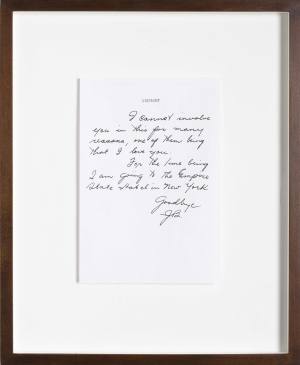 I cannot involve
you in this for many
reasons, one of them being
that I love you.
For the time being
I am going to the Empire
State Hotel in New York
Goodbye